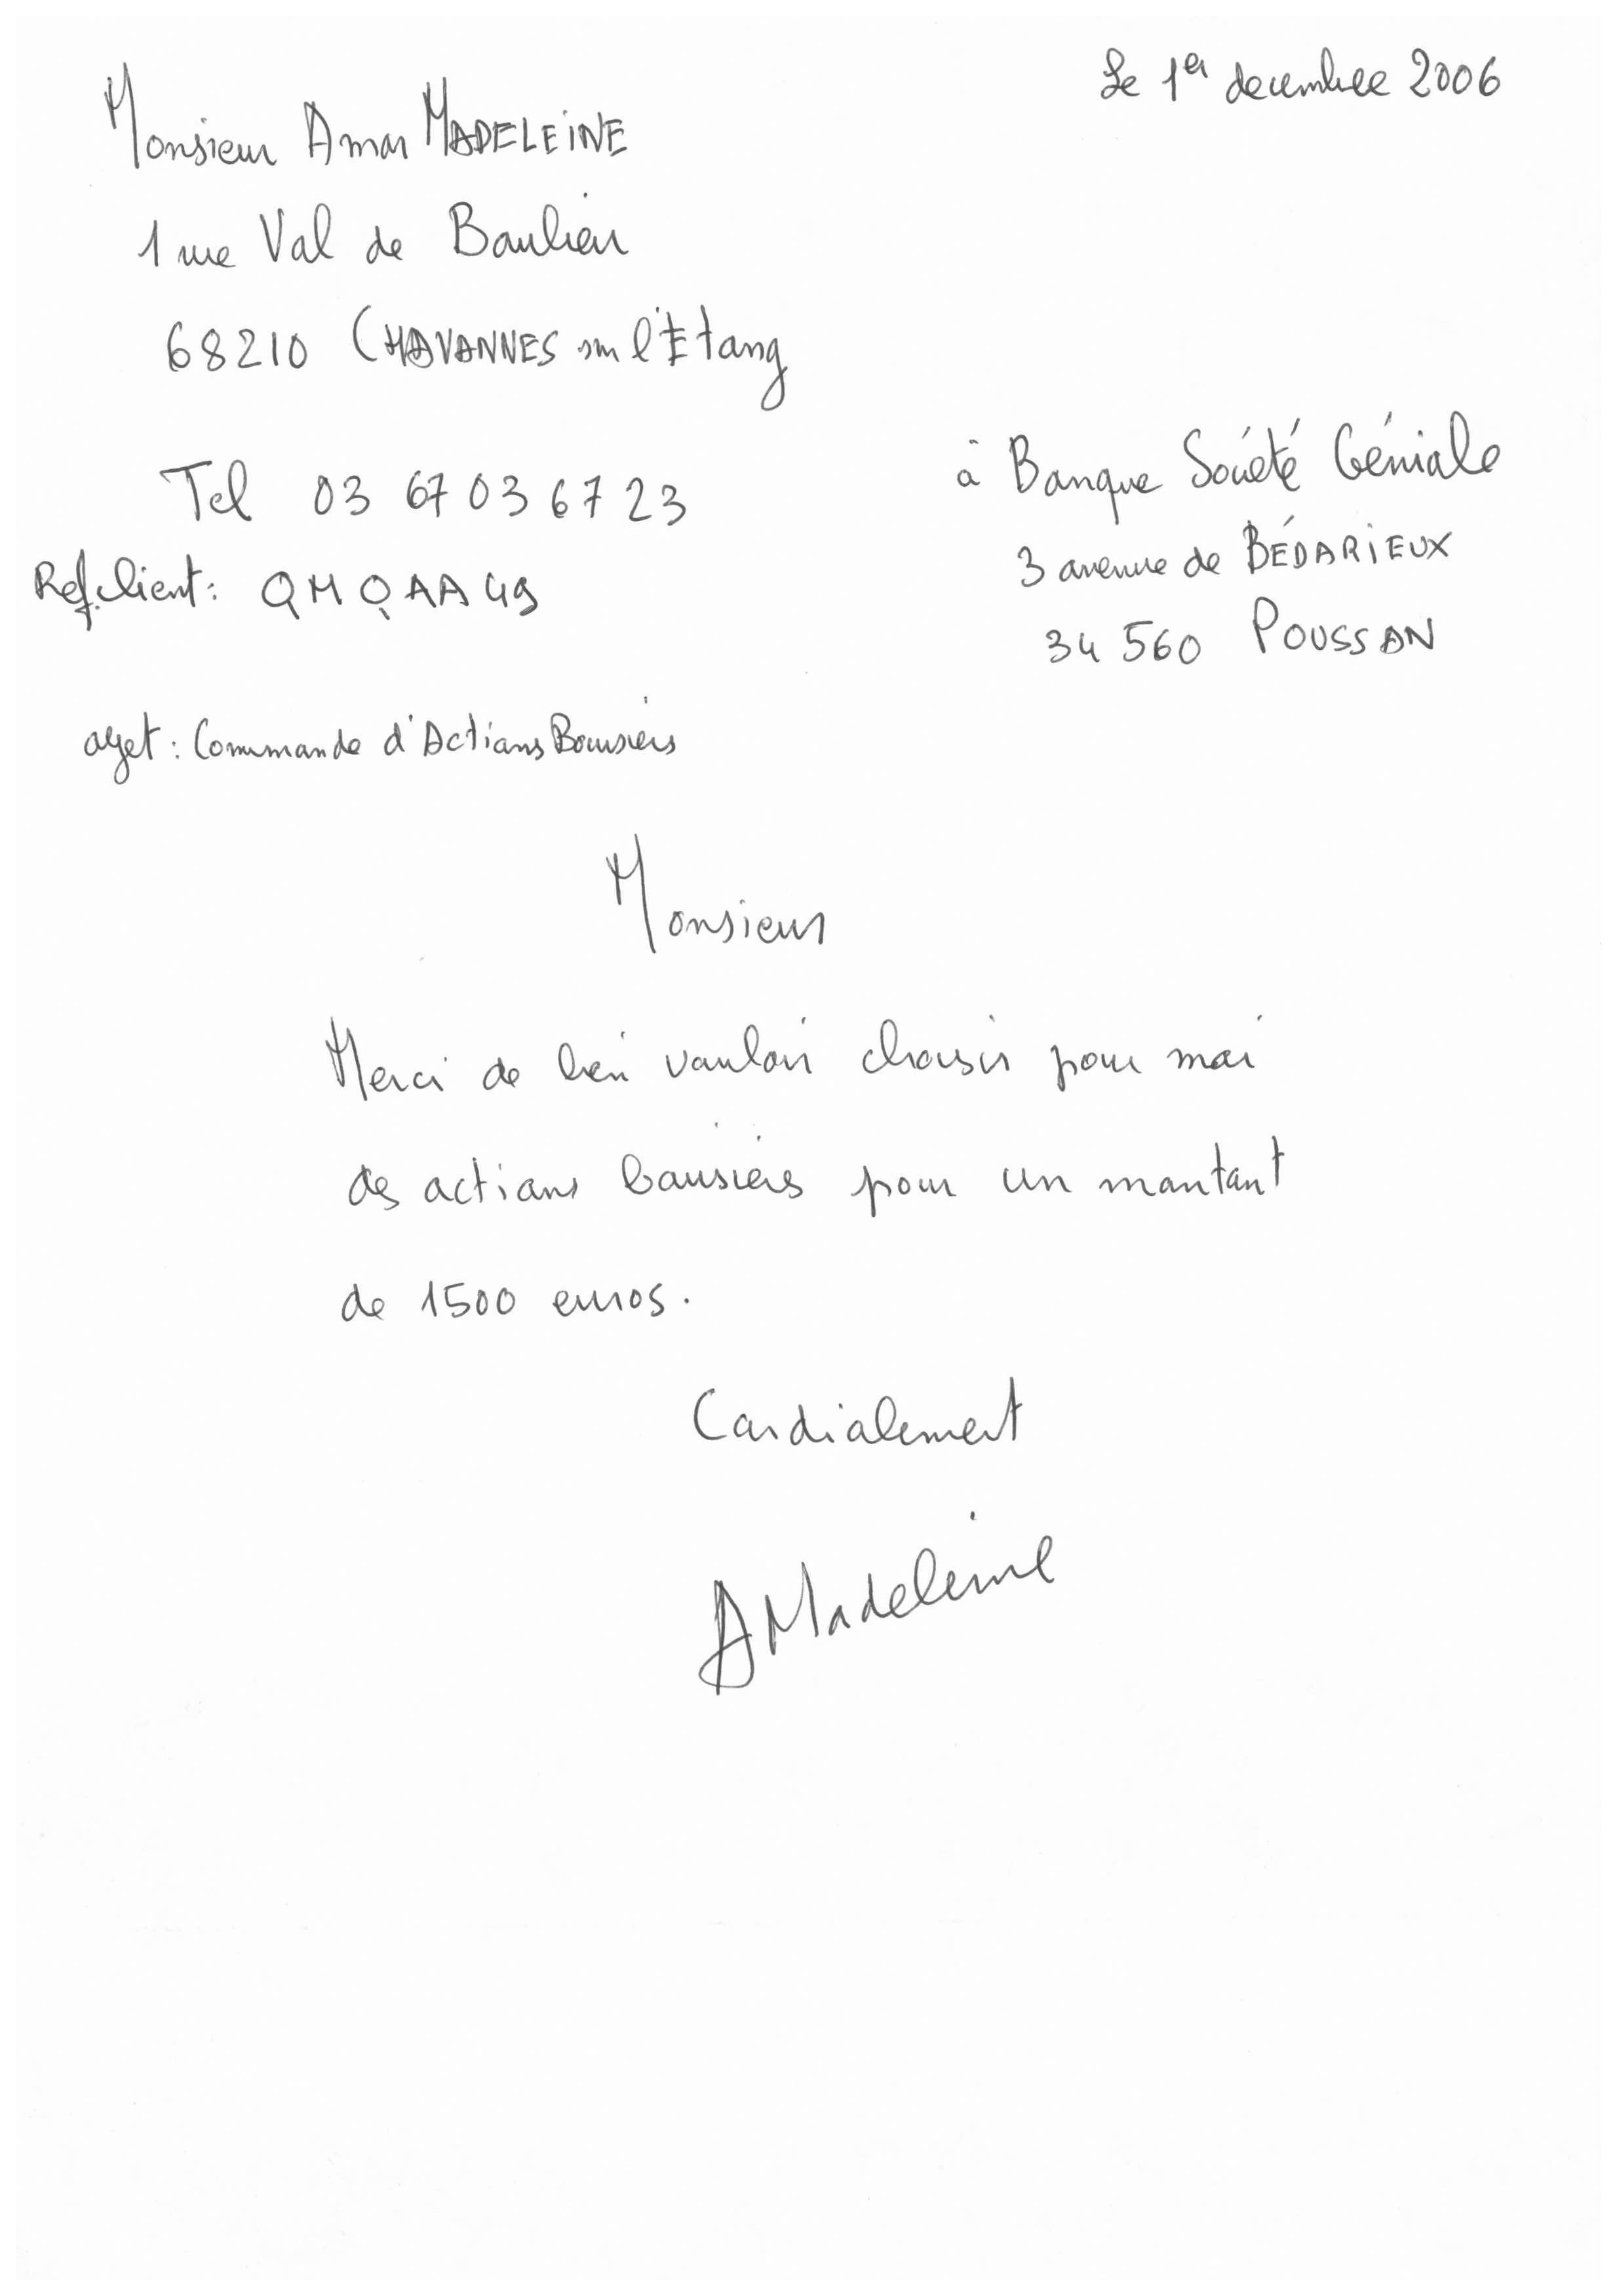 Le 1er decembre 2006
Monsieur Amar MADELEINE
1 rue Val de Baulieu
68210 CHAVANNES sur l'Etang
Tel 03 67 03 67 23
à Banque Société Géniale
3 avenue de BÉDARIEUX
34 560 POUSSAN
Ref.client: QMQAA49
objet : Commande d'Actions Boursiers
Monsieur
Merci de bien vouloir choisir pour moi
des actions boursiers pour un montant
de 1500 euros.
Cordialement
AMadeleine